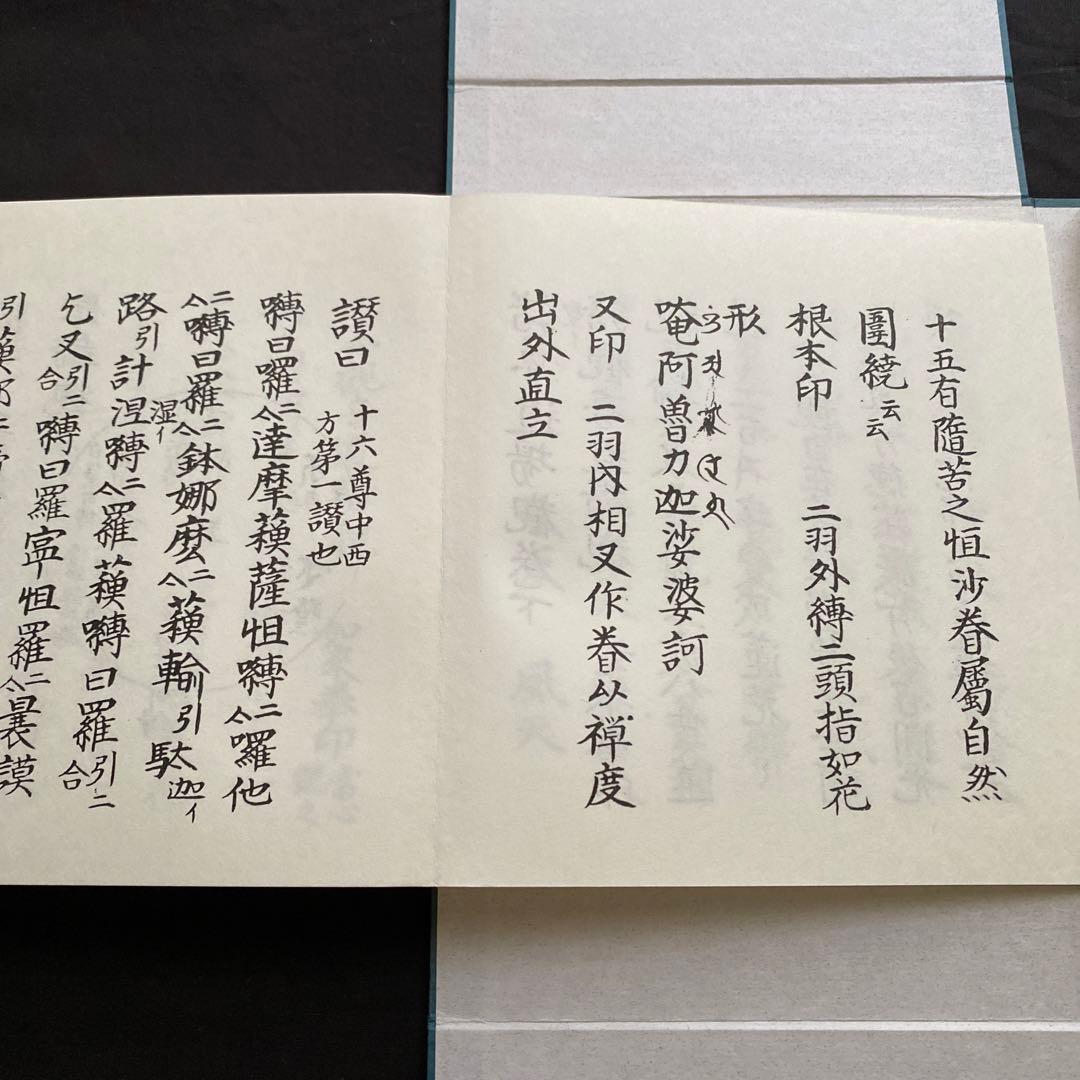 十五有隨苦之恒沙眷屬自然
圍繞云云
根本印 二羽外縛二頭指如花
形
唵阿嚕力迦娑婆訶
又印 二羽內相叉作眷以禅度
出外直立
讃曰 十六尊中西
方第一讃也
嚩曰囉二合達摩蘓薩怛嚩二合囉他
二合嚩曰羅二合鉢娜麽二合蘓輸引馱迦イ
路引計涅湿イ嚩二合羅蘓嚩曰羅引二合
乞叉引二合嚩曰羅寧怛羅二合曩謨